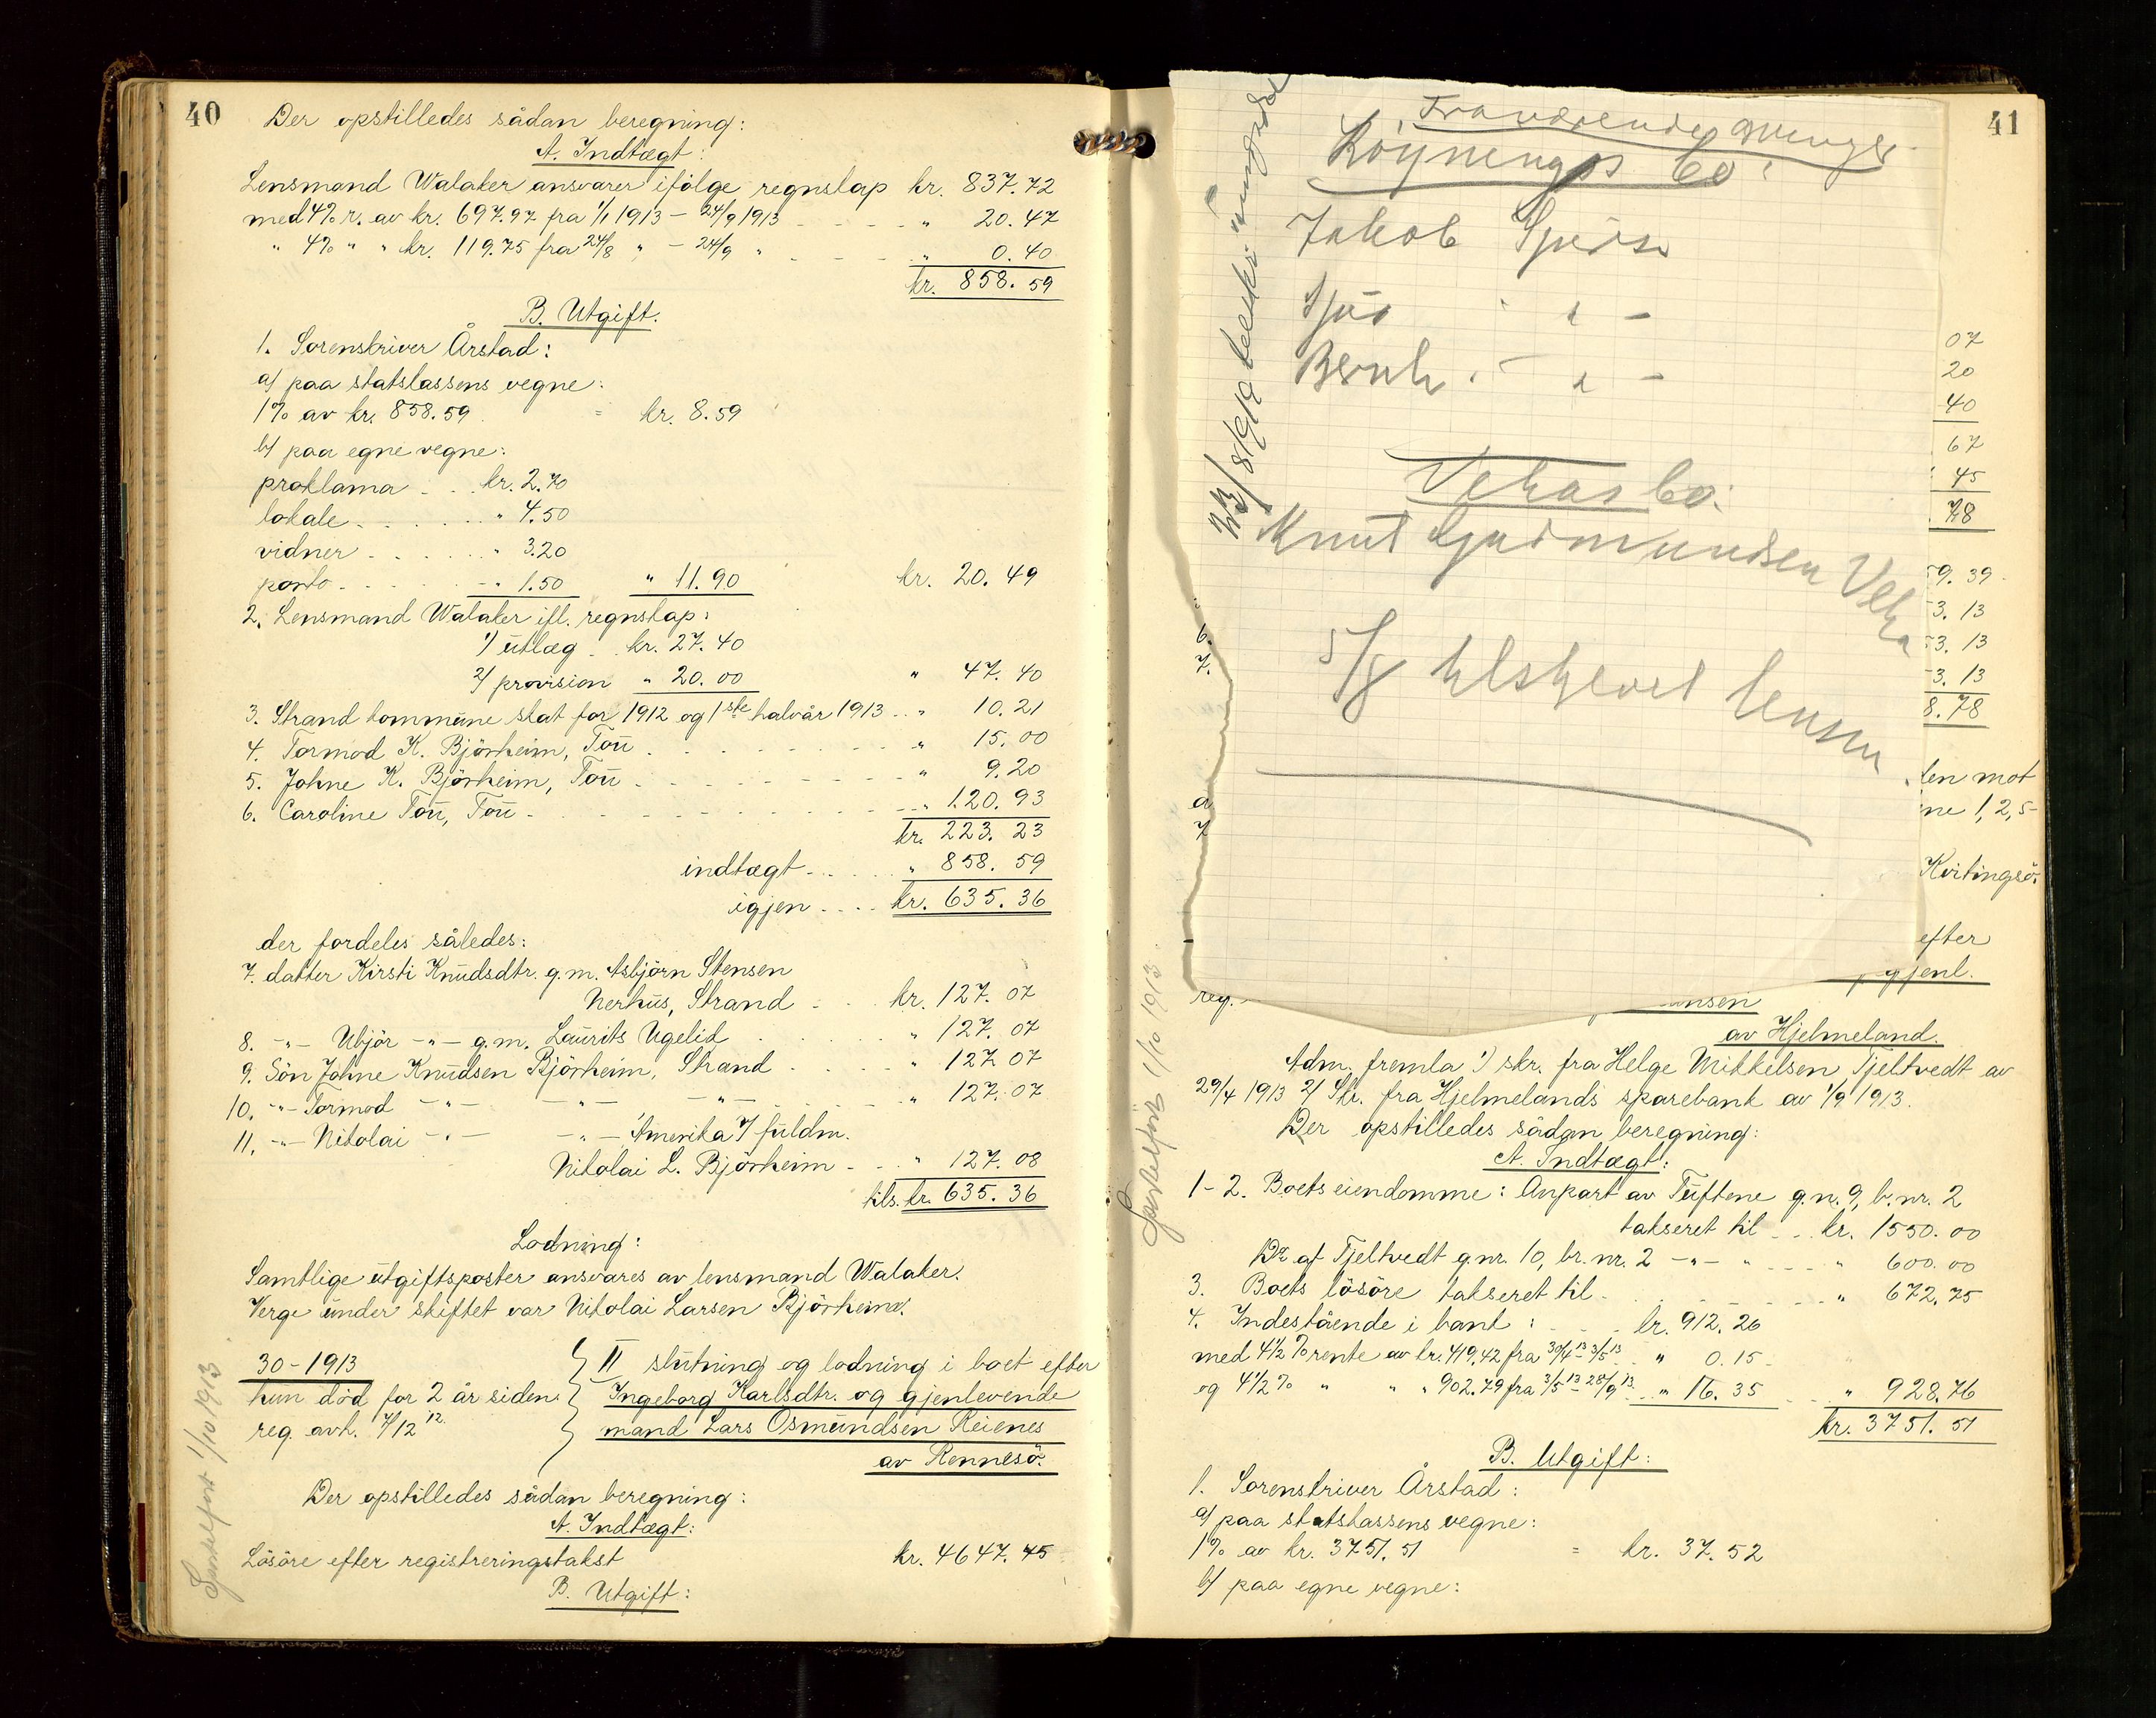 40
Der opstilledes sådan beregning:
A. Indtægt:
Lensmand Walaker ansvarer ifølge regnskap kr. 837.72
med 4% r. av kr. 697.97 fra 1/1 1913 - 24/9 1913 " 20.47
" 4% " " kr. 119.75 fra 24/8 " - 24/9 " " 0.40
kr. 858.59
B. Utgift.
1. Sorenskriver Årstad:
a) paa statskassens vegne:
1% av kr. 858.59 = kr. 8.59
b) paa egne vegne:
proklama kr. 2.70
lokale " 4.50
vidner " 3.20
porto " 1.50 " 11.90 kr. 20.49
2. Lensmand Walaker ifl. regnskap:
1) utlæg kr. 27.40
2) provision " 20.00 " 47.40
3. Strand kommune skat for 1912 og 1ste halvår 1913 " 10.21
4. Tormod K. Björheim, Tou " 15.00
5. Johne K. Björheim, Tou " 9.20
6. Caroline Tou, Tou " 120.93
kr. 223.23
indtægt " 858.59
igjen kr. 635.36
der fordeles således:
7. datter Kirsti Knudsdtr. g.m. Asbjörn Stensen
Nerhus, Strand kr. 127.07
8. -"- Ubjör -"- g.m. Laurits Ugelid " 127.07
9. Sön Johne Knudsen Björheim, Strand " 127.07
10. -"- Tormod -"- -"- -"- " 127.07
11. -"- Nikolai -"- -"- Amerika / fuldm.
Nikolai L. Björheim " 127.08
tils. kr. 635.36
Lodning:
Samtlige utgiftsposter ansvares av lensmand Walaker.
Verge under skiftet var Nikolai Larsen Björheim.
30-1913
hun död for 2 år siden
reg. avh. 7/12 12.
II slutning og lodning i boet efter
Ingeborg Karlsdtr. og gjenlevende
mand Lars Osmundsen Reienes
av Rennesö.
Der opstilledes sådan beregning:
A. Indtægt:
Lösöre efter registreringstakst kr. 4647.45
B. Utgift:
1/10 1913
41
Fraværende
bo:
Jakob
Vehas bo:
Knut Gudmundsen Veha
5/8
07
20
40
67
45
78
9.39
3.13
3.13
3.13
8.78
6.
7.
en mot
ne 1, 2, 5-
a
7
Kvitingsö.
efter
gjenl.
reg.
nsen
av Hjelmeland.
Adm. fremla 1) skr. fra Helge Mikkelsen Tjeltvedt av
29/4 1913 2) Skr. fra Hjelmelands sparebank av 1/9 1913.
Der opstilledes sådan beregning:
A. Indtægt:
1-2. Boets eiendomme: Anpart av Tuftene g.n. 9, b.nr. 2
takseret til kr. 1550.00
Do af Tjeltvedt g.nr. 10, br.nr. 2 -"- " " 600.00
3. Boets lösöre takseret til " 672.75
4. Indestående i bank: kr. 912.26
med 4 1/2 % rente av kr. 419.42 fra 30/4 13 - 3/5 13 " 0.15
og 4 1/2 % " " " 902.79 fra 3/5 13 - 28/9 13 " 16.35 " 928.76
kr. 3751.51
B. Utgift:
1. Sorenskriver Årstad:
a) paa statskassens vegne:
1% av kr. 3751.51 = kr. 37.52
b) paa egne vegne:
1/10 1913